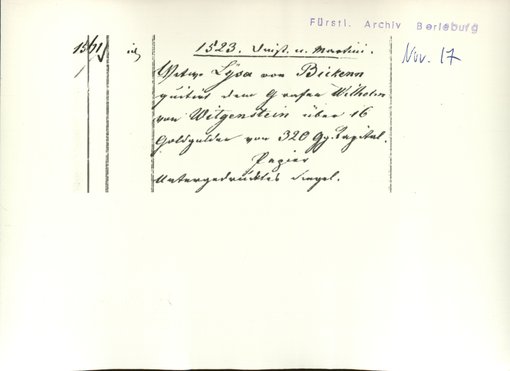 Fürstl. Archiv Berleburg
Nov. 17
1523. Dnſt. n. Martini.
Wetwe Lysa von Bickenn
quitirt dem Grafen Wilhelm
von Witgenstein über 16
Goldgulder von 320 Gg. Capital.
Papier
Untergedrucktes Siegel.